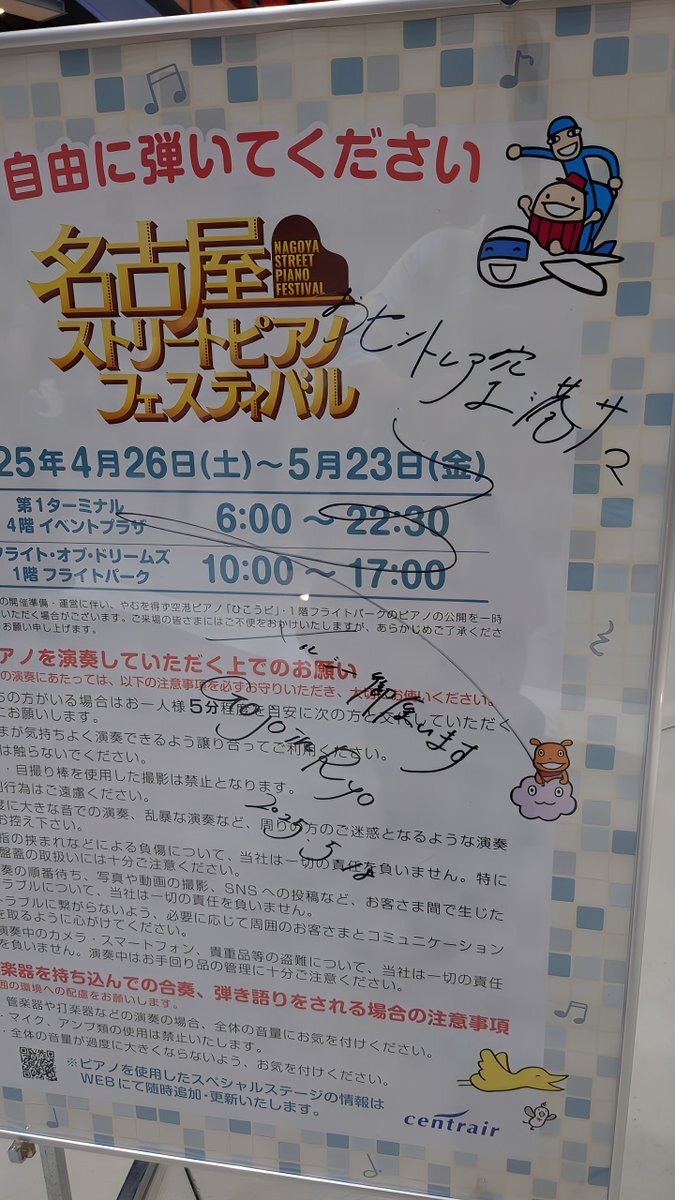 自由に弾いてください
名古屋
NAGOYA
STREET
PIANO
FESTIVAL
ストリートピアノ
フェスティバル
セントレア空港サマ
25年4月26日(土)～5月23日(金)
第1ターミナル
4階 イベントプラザ
6:00 ～ 22:30
フライト・オブ・ドリームズ
1階 フライトパーク
10:00 ～ 17:00
の開催準備・運営に伴い、やむを得ず空港ピアノ「ひこうピ」・1階フライトパークのピアノの公開を一時
いただく場合がございます。ご来場の皆さまにはご不便をおかけいたしますが、あらかじめご了承くださ
お願い申し上げます。
アノを演奏していただく上でのお願い
の演奏にあたっては、以下の注意事項を必ずお守りいただき、大切にお使いください。
ちの方がいる場合はお一人様5分程度を目安に次の方に交代していただく
にお願いします。
まが気持ちよく演奏できるよう譲り合ってご利用ください。
は触らないでください。
・自撮り棒を使用した撮影は禁止となります。
行為はご遠慮ください。
度に大きな音での演奏、乱暴な演奏など、周りの方のご迷惑となるような演奏
お控え下さい。
指の挟まれなどによる負傷について、当社は一切の責任を負いません。特に
盤蓋の取扱いには十分ご注意ください。
奏の順番待ち、写真や動画の撮影、SNSへの投稿など、お客さま間で生じた
ラブルについて、当社は一切の責任を負いません。
トラブルに繋がらないよう、必要に応じて周囲のお客さまとコミュニケーション
を取るように心がけてください。
演奏中のカメラ・スマートフォン、貴重品等の盗難について、当社は一切の責任
を負いません。演奏中はお手回り品の管理に十分ご注意ください。
楽器を持ち込んでの合奏、弾き語りをされる場合の注意事項
囲の環境への配慮をお願いします。
管楽器や打楽器などの演奏の場合、全体の音量にお気を付けください。
・マイク、アンプ類の使用は禁止いたします。
・全体の音量が過度に大きくならないよう、お気を付けください。
※ピアノを使用したスペシャルステージの情報は
WEBにて随時追加・更新いたします。
centrair